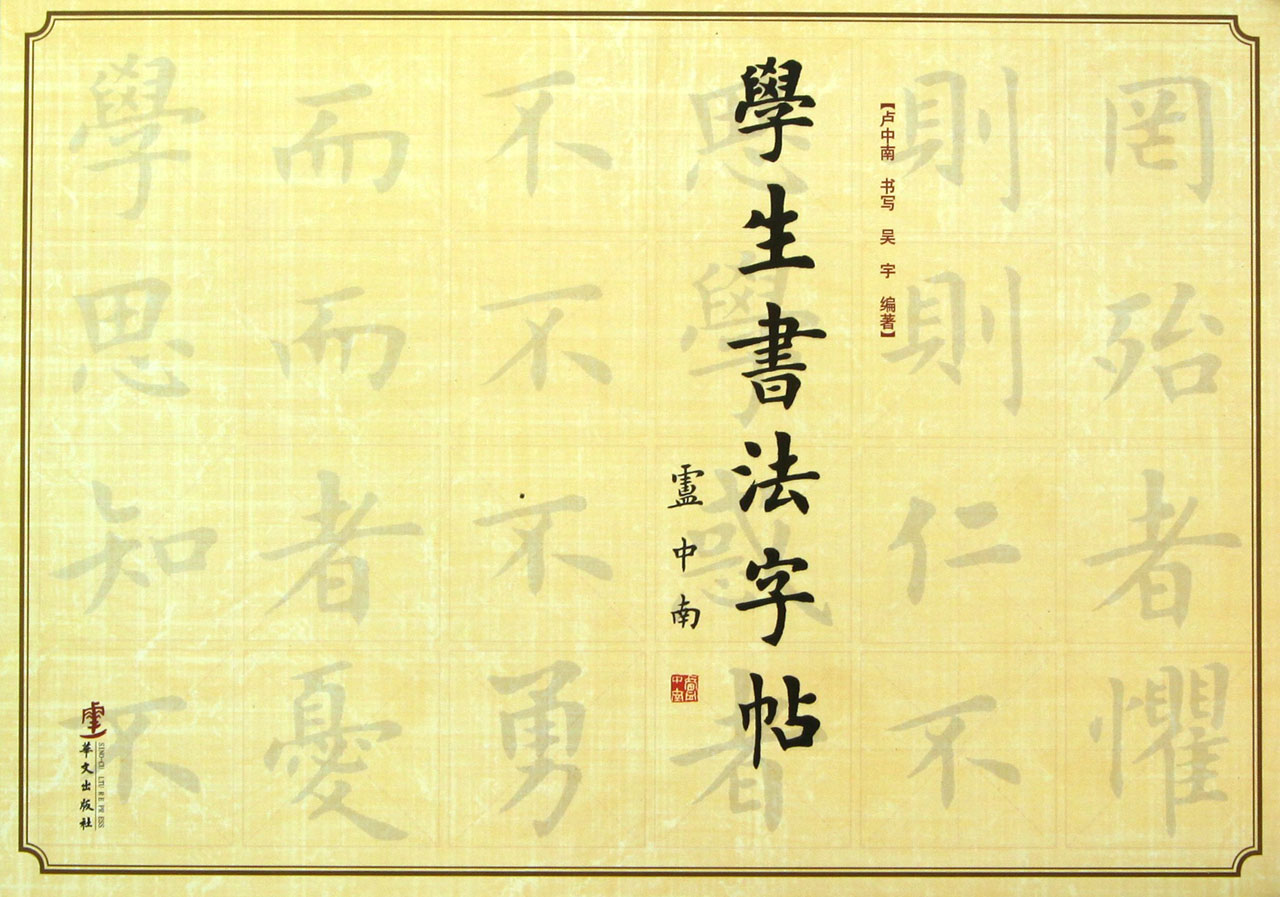 學生書法字帖
【卢中南 书写 吴宇 编著】
盧中南
學而不思則罔
思而不學則殆
知者不惑仁者
不憂勇者不懼
華文出版社